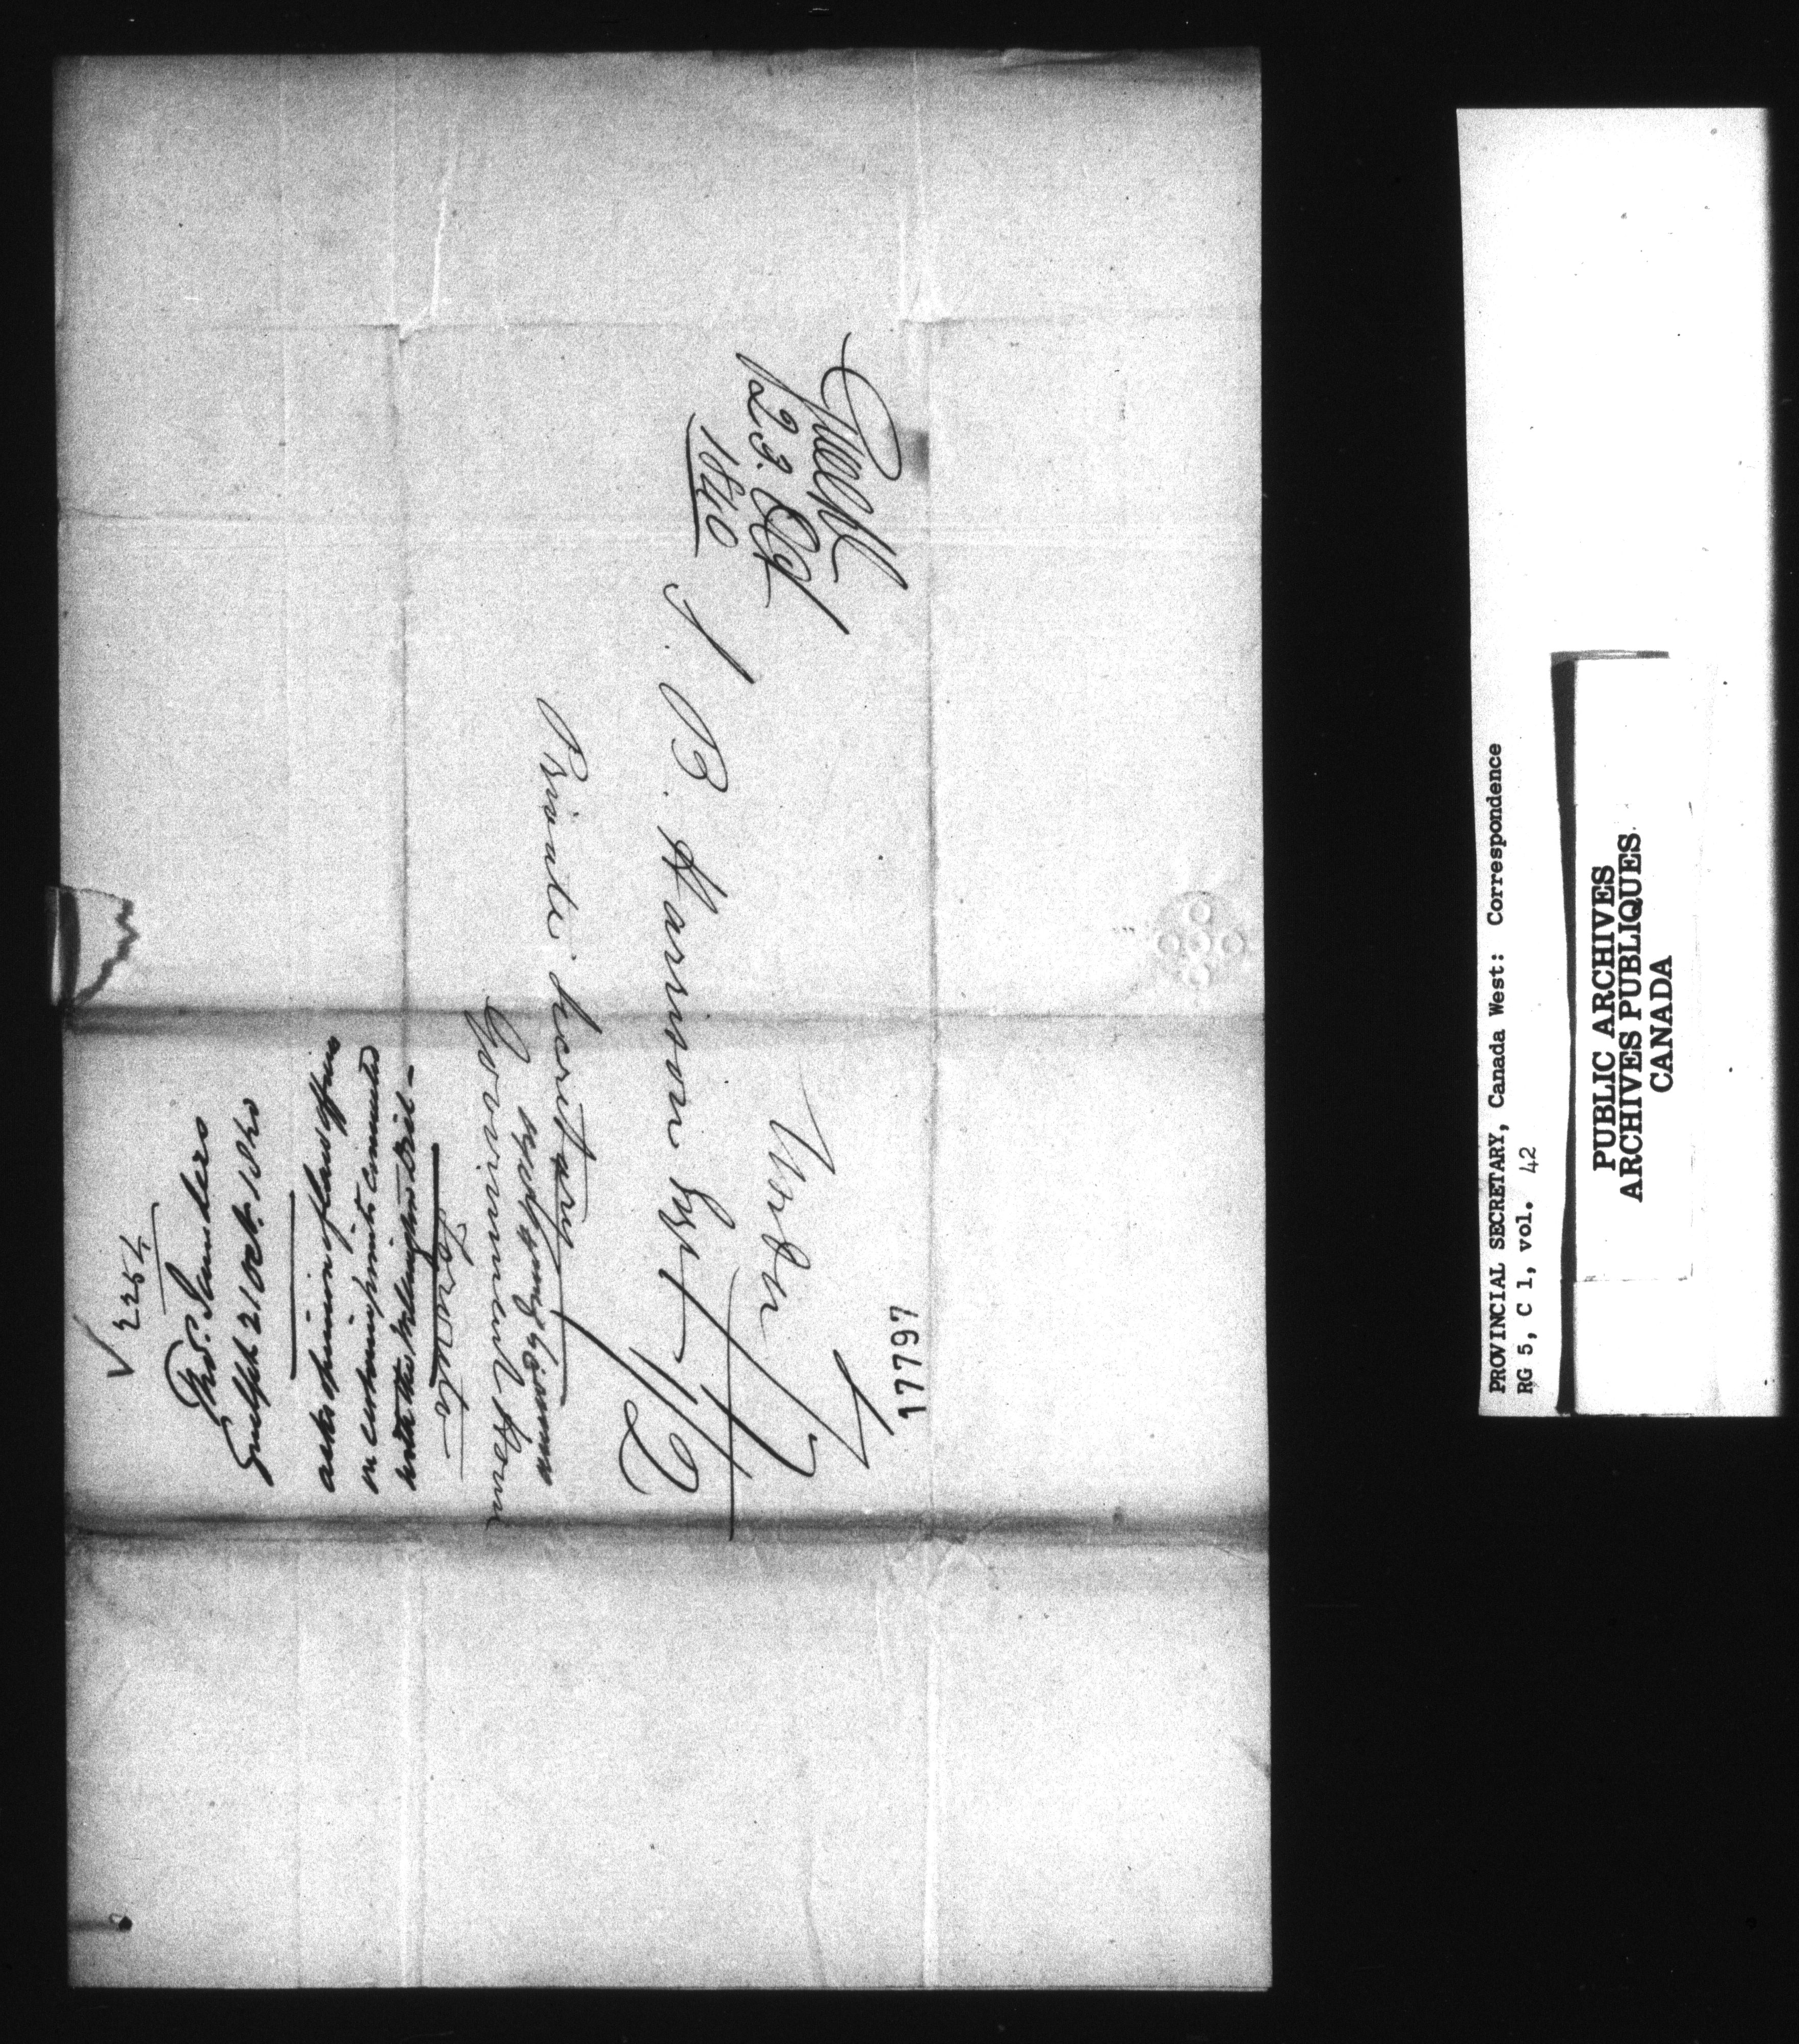 Guelph
23. Oct
1840
S. B. Harrison Esqr
Private Secretary
Government House
Toronto
1/2
17797
V
2254
Thos. Saunders
Guelph 21 Oct. 1840
asks opinion of Law officers
on certain points connected
with the
PROVINCIAL SECRETARY, Canada West: Correspondence
RG 5, C 1, vol. 42
PUBLIC ARCHIVES
ARCHIVES PUBLIQUES
CANADA